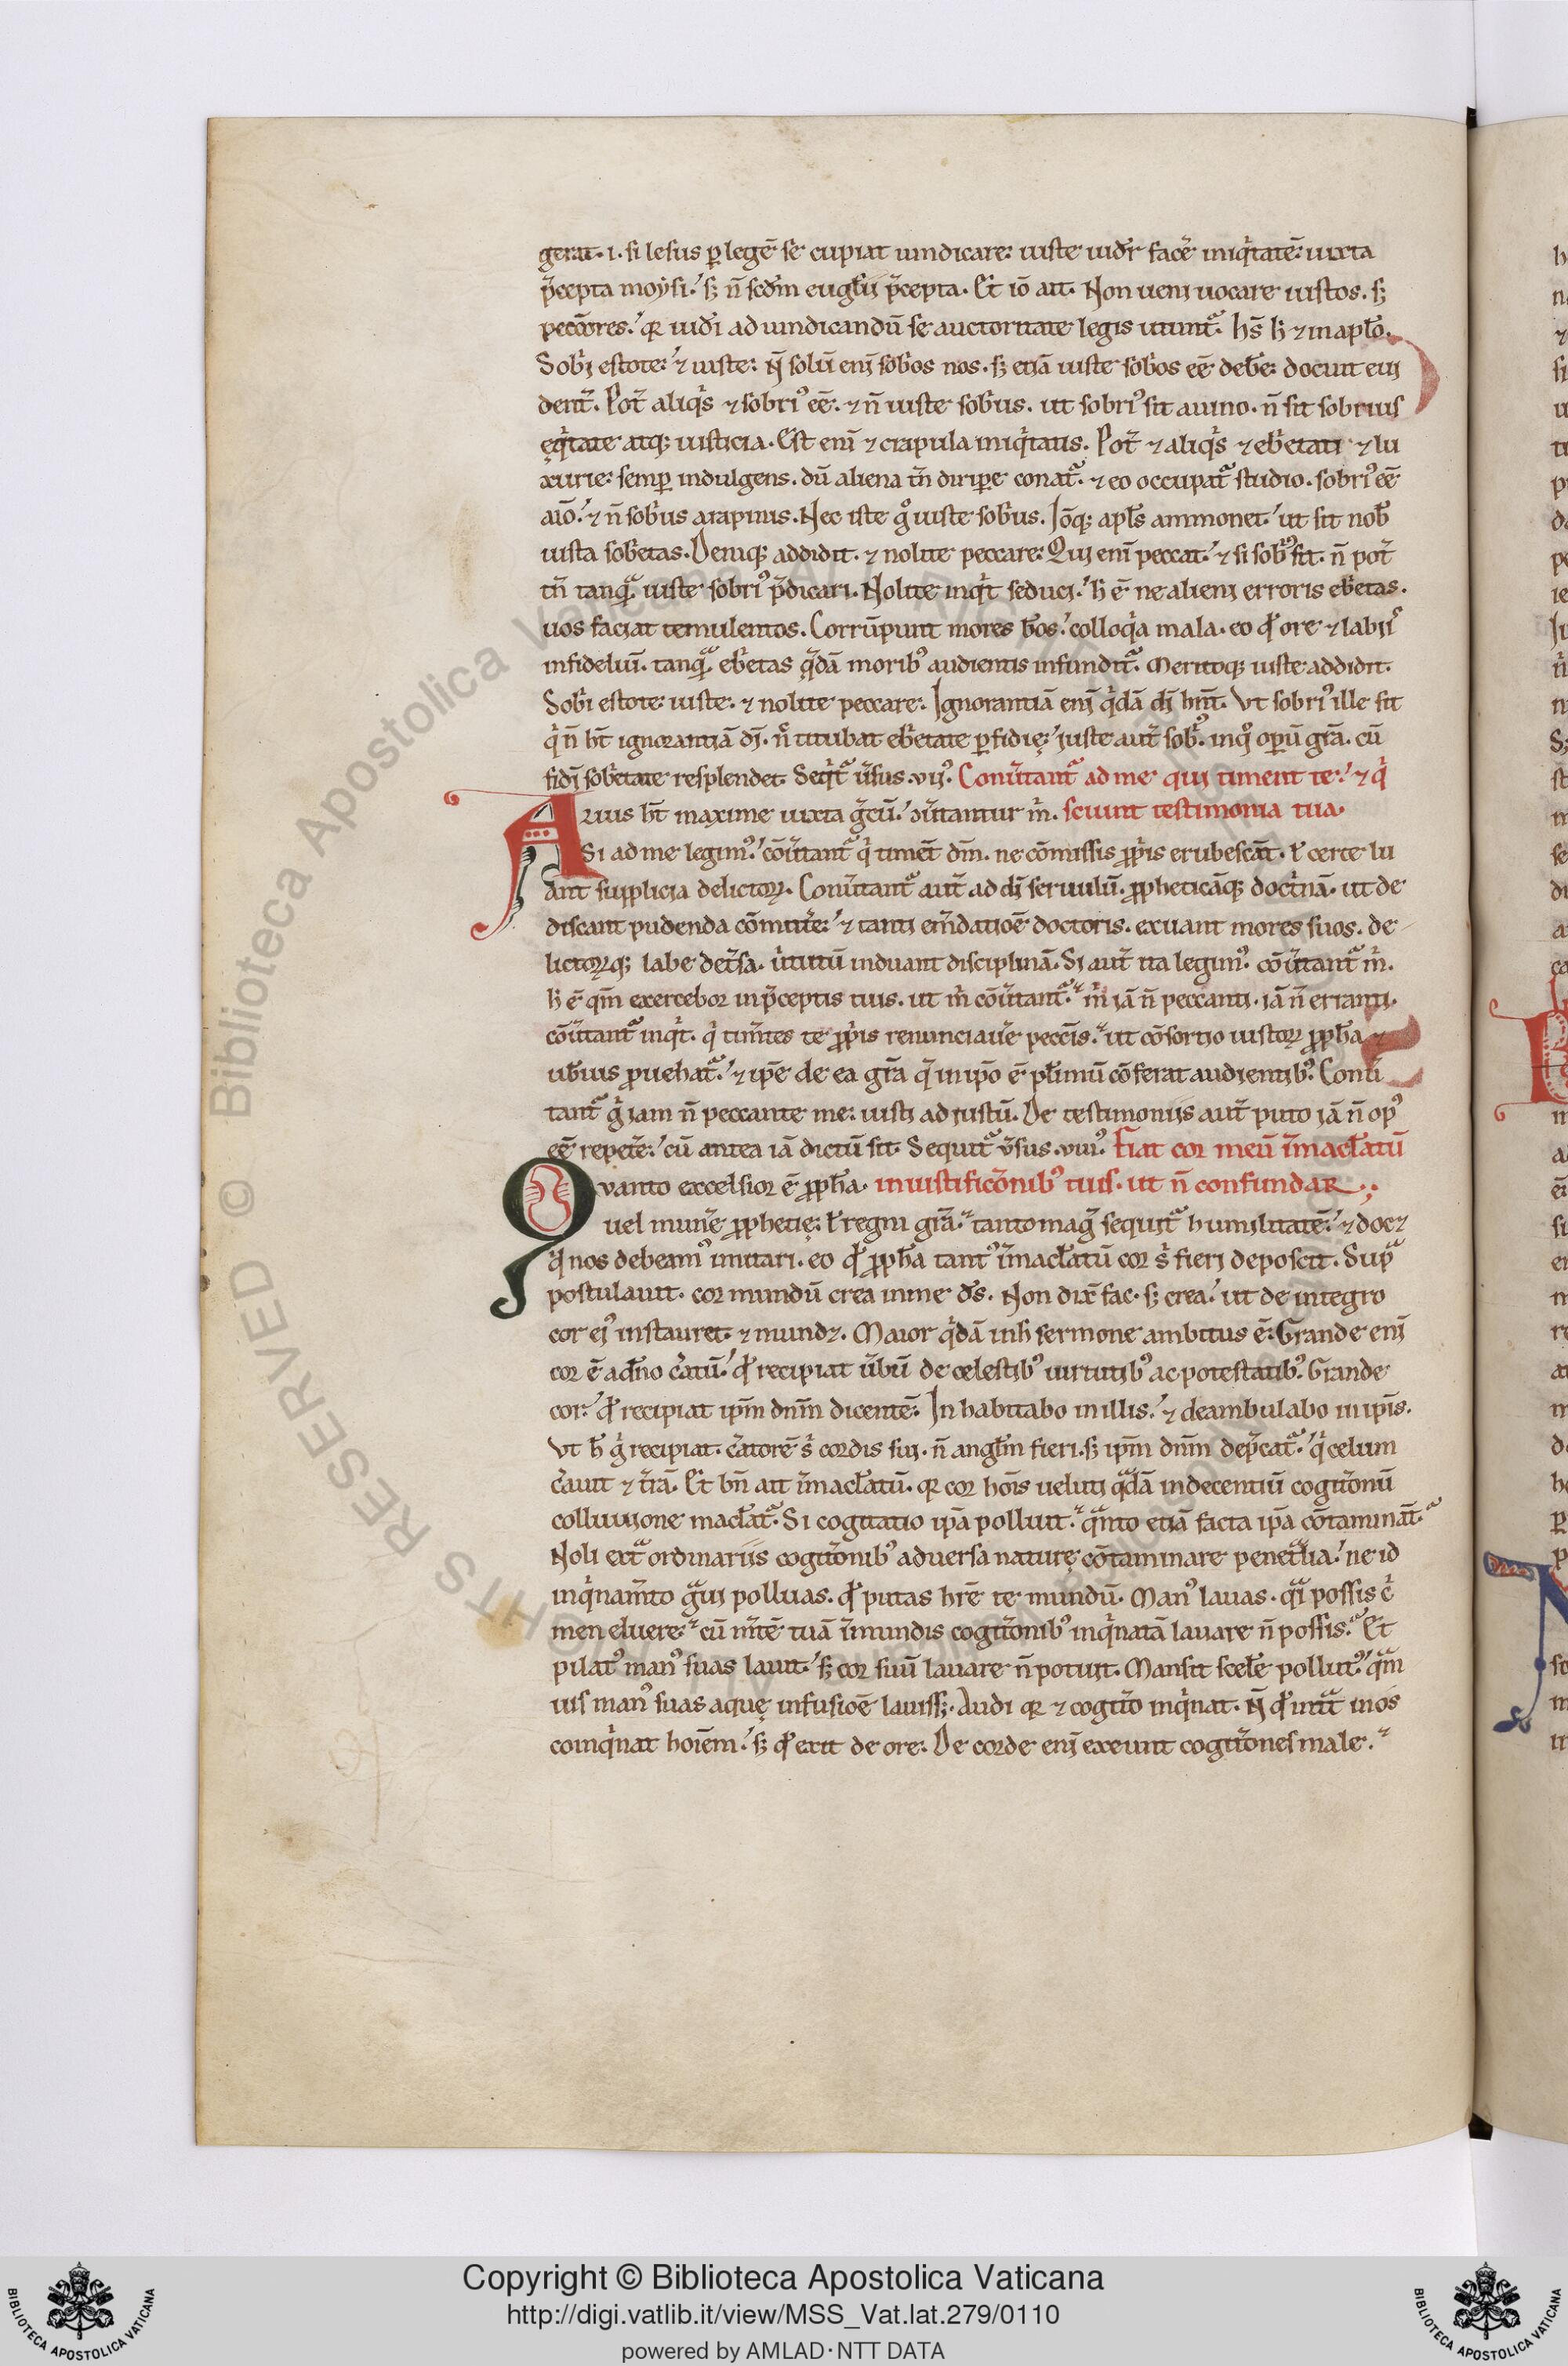 gerat· i· si lesus p̱ legē se cupiat uindicare: iuste uidr̄ facē iniq̇tatē: iuxta
p̄cepta moysi.' sꝫ n̄ scd̄m eugl̄ii p̄cepta. Et iō ait. Non ueni uocare iustos. sꝫ
pecc̄ores.' qꝛ iudi ad uindicandū se auctoritate legis utunt᷑. hs̄ h̄ ⁊ in apl̄o.
Sobr̍i estote: ⁊ iuste: n̄ solū eni sobr̍os nos. sꝫ etiā iuste sobr̍os eē debe: docuit eui
dent̄. Pot̄ aliq̍s ⁊ sobriꝰ eē. ⁊ n̄ iuste sobr̍us. ut sobriꝰ sit a uino. n̄ sit sobrius
ęq̍tate atqꝫ iusticia. Est eni ⁊ crapula iniq̍tatis. Pot̄ ⁊ aliq̍s ⁊ ebr̍etati ⁊ lu
xurie: semp̱ indulgens. dū aliena tn̄ dirip̱e conat᷑. ⁊ eo occupat᷑ studio. sobriꝰ eē
aīo.' ⁊ n̄ sobr̍us a rapinis. Nec iste gͦ iuste sobr̍us. Iōqꝫ apl̄s ammonet.' ut sit nob̄
iusta sobr̍etas. Deniqꝫ addidit. ⁊ nolite peccare: Qui eni peccat.' ⁊ si sobr̍ꝰ sit. n̄ pot̄
tn̄ tanqᷓ iuste sobriꝰ p̄dicari. Nolite inq̍t seduci.' h̄ ē ne alieni erroris ebr̍etas.
uos faciat temulentos. Corrūpunt mores b̄os.' colloq̍a mala. eo qď ore ⁊ labiiꝰ
infideliū. tanqᷓ ebr̍etas q̄dā moribꝰ audientis infundit᷑. Meritoqꝫ iuste addidit.
Sobr̍i estote iuste. ⁊ nolite peccare. Ignorantiā eni q̍dā di hn̄t. Vt sobriꝰ ille sit
q̍ n̄ ht̄ ignorantiā di. n̄ titubat ebr̍etate p̱fidię: iuste aut̄ sobr̍ꝰ. in qͦ op̱ū grā. cū
fidi sobr̍etate resplendet. Seqt᷑ ūsus .vijꝰ. Conūtant᷑ ad me qui timent te.' ⁊ q̍
Arius ht̄ maxime iuxta ḡcū.' ↄūtantur m̍. sciunt testimonia tua.
Si ad me legimꝰ.' cōūtant᷑ q̍ timēt dm̄. ne cōmissis ꝓp̍is erubescāt. ł certe lu
ant supplicia delictoꝝ. Conūtant᷑ aut̄ ad di seruulū. ꝓpheticāqꝫ doct̍nā. ut de
discant pudenda cōmittē: ⁊ tanti em̄datioē doctoris. exuant mores suos. de
lictoꝝqꝫ labe det̄sa. u̍tutū induant disciplinā. Si aut̄ ita legimꝰ. cōūtant᷑ m̍.
h̄ ē qm̄ exercebor in p̄ceptis tuis. ut m̍ cōūtant᷑. m̍ iā n̄ peccanti. iā n̄ erranti.
cōūtant᷑ inq̍t. q̍ timētes te ꝓp̍is renunciauē pecc̄is. ut cōsortio iustoꝝ ꝓph̄a ⁊
ub̄ius ꝓuehat᷑.' ⁊ ip̄e de ea grā q̄ in ip̄o ē pl̄imū cōferat audientibꝰ. Conū
tant᷑ g̍ iam n̄ peccante me: iusti ad iustū. De testimoniis aut̄ puto iā n̄ opꝰ
eē repetē.' cū antea iā dictū sit. Sequit᷑ ūsus .viiiꝰ. Fiat cor meū īmacl̄atū
Quanto excelsior ē ꝓph̄a. in iustificōnibꝰ tuis. ut n̄ confundar.
uel munē ꝓphetię: ł regni grā. tanto magꝭ sequit᷑ humilitatē.' ⁊ doc⁊
q̄ nos debeamꝰ imitari. eo qď ꝓph̄a tantꝰ īmacl̄atū cor s̍ fieri deposcit. Supᷓ
postulauit. cor mundū crea in me d̄s. Non dix̄ fac. sꝫ crea.' ut de integro
cor eiꝰ instauret. ⁊ mund⁊. Maior q̄dā in h̄ sermone ambitus ē: Grande eni
cor ē a dn̄o c̍atū.' qď recipiat ūbū de celestibꝰ uirtutibꝰ ac potestatibꝰ. Grande
cor.' qď recipiat ip̄m dn̄m dicentē. Inhabitabo in illis.' ⁊ deambulabo in ip̄is.
Vt h̄ g̍ recipiat. c̍atorē s̍ cordis sui. n̄ angl̄m fieri. sꝫ ip̄m dn̄m dep̄cat᷑.' q̍ celum
c̍auit ⁊ t̄rā. Et bn̄ ait īmacl̄atū. qꝛ cor hōis ueluti q̄dā indecentiū cogit̄onū
colluuione macl̄at᷑. Si cogitatio ip̄a polluit. qᷓnto etiā facta ip̄a cōtaminat᷑.
Noli ext᷑ordinariis cogit̄onibꝰ aduersa naturę cōtaminare penet᷑lia.' ne id
inq̍nam̄to gᷓui polluas. qď putas hr̄e te mundū. Manꝰ lauas. qᷓi possis c̍
men eluere. cū m̄tē tuā īmundis cogit̄onibꝰ inq̍natā lauare n̄ possis. Et
pilatꝰ manꝰ suas lauit.' sꝫ cor suū lauare n̄ potuit. Mansit scel̄e pollutꝰ.' qᷓm
uis manꝰ suas aquę infusioē lauissꝫ. Audi qꝛ ⁊ cogit̄o inq̍nat. N̄ qď int᷑t in os
coinq̍nat hoīem.' sꝫ qď exit de ore. De corde eni exeunt cogit̄ones male.
Copyright © Biblioteca Apostolica Vaticana
http://digi.vatlib.it/view/MSS_Vat.lat.279/0110
powered by AMLAD·NTT DATA